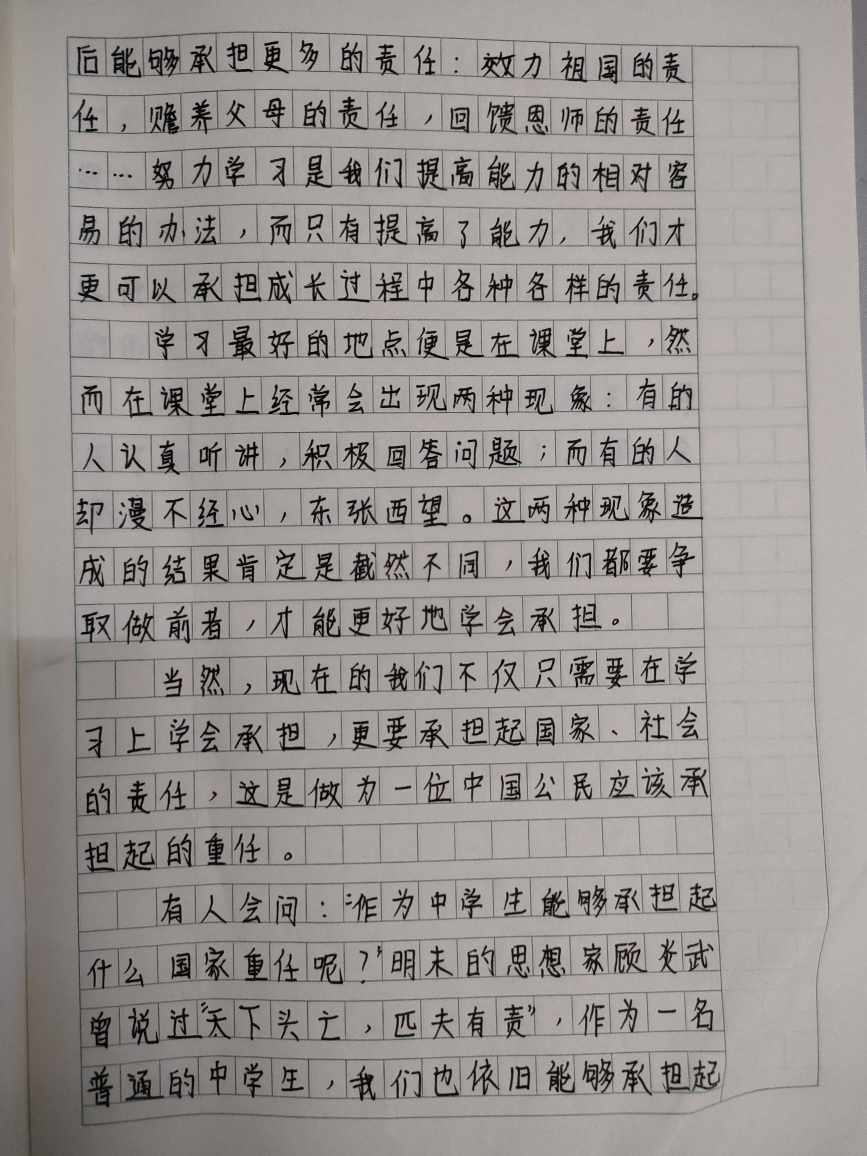 后能够承担更多的责任：效力祖国的责
任，赡养父母的责任，回馈恩师的责任
……努力学习是我们提高能力的相对容
易的办法，而只有提高了能力，我们才
更可以承担成长过程中各种各样的责任。
学习最好的地点便是在课堂上，然
而在课堂上经常会出现两种现象：有的
人认真听讲，积极回答问题；而有的人
却漫不经心，东张西望。这两种现象造
成的结果肯定是截然不同，我们都要争
取做前者，才能更好地学会承担。
当然，现在的我们不仅只需要在学
习上学会承担，更要承担起国家、社会
的责任，这是做为一位中国公民应该承
担起的重任。
有人会问：“作为中学生能够承担起
什么国家重任呢？”明末的思想家顾炎武
曾说过“天下头亡，匹夫有责”，作为一名
普通的中学生，我们也依旧能够承担起